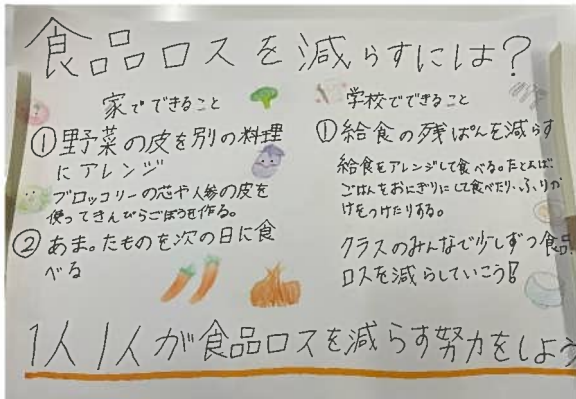 食品ロスを減らすには？
家でできること
①野菜の皮を別の料理
にアレンジ
ブロッコリーの芯や人参の皮を
使ってきんぴらごぼうを作る。
②あまったものを次の日に食
べる
学校でできること
①給食の残ぱんを減らす
給食をアレンジして食べる。たとえば、
ごはんをおにぎりにして食べたり、ふりか
けをつけたりする。
クラスのみんなで少しずつ食品
ロスを減らしていこう！
1人1人が食品ロスを減らす努力をしよう